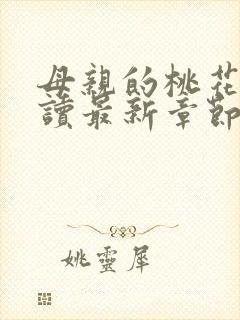 母親的桃花
讀最新章節
姚靈犀